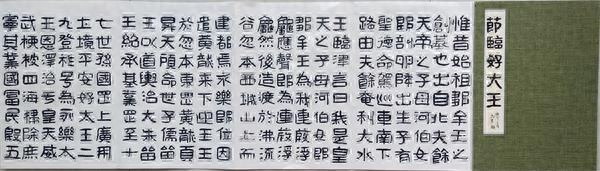 節臨好大王
惟昔始祖鄒牟王之
創基也出自北夫餘
天帝之子母河伯女
郎剖卵降出生子有
聖德
命駕巡車南下
路由夫餘奄利大水
王臨津言曰我是皇
天之子母河伯女郎
鄒牟王為我連葭浮
龜應聲即為連葭浮
龜然後造渡於沸流
谷忽本西城山上而
建都焉永樂世位因
遣黃龍來下迎王王
於忽本東罡黃龍負
昇天顧命世子儒留
王以道輿治大朱留
王紹承基業遝至十
七世孫國罡上廣開
土境平安好太王二
九登祚號為永樂太
王恩澤洽于皇天威
武被四海掃除庶
寧其業國富民殷五